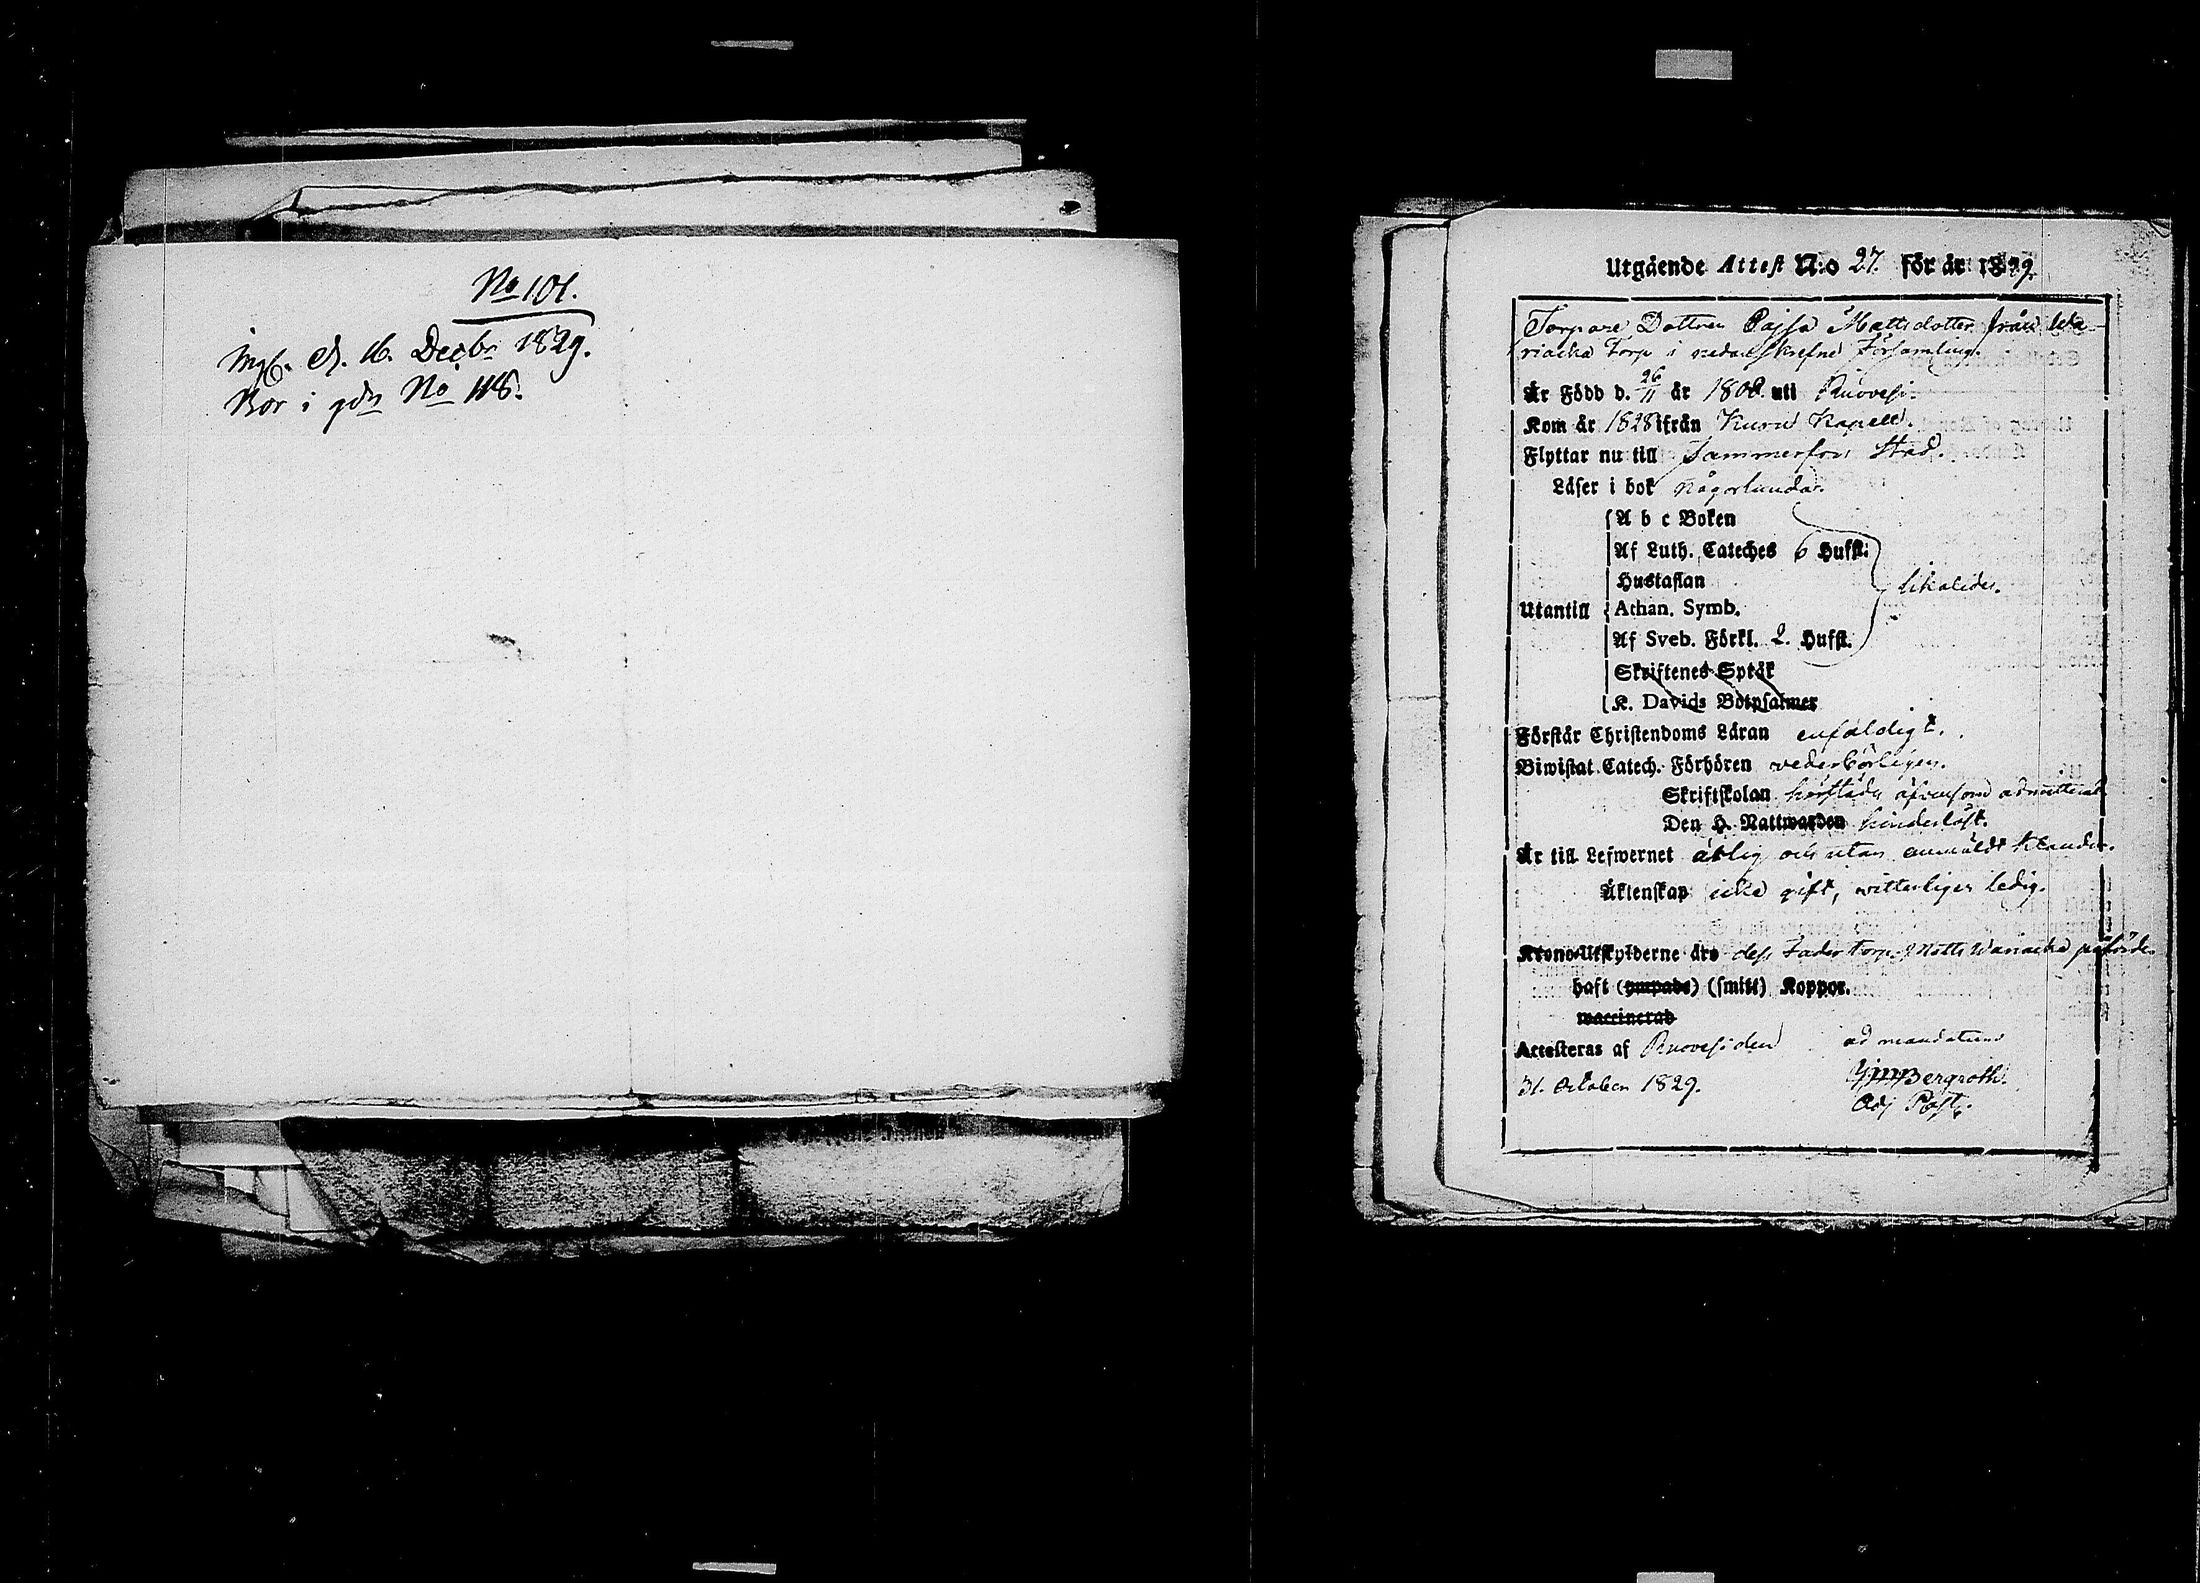 No 101.
ingf. d. 16. Decbr 1829.
Bor i gdn No 118.
Utgående Attest N:o 27. för år 1829.
Torpare Dottren Cajsa Mattsdotter från Wa-
riacka Torp i nedanskrefne Församling.
Är Född d. 26/11 år 1808. uti Ruovesi.
Kom år 1828 ifrån Kuru Kapell.
Flyttar nu till Tammerfors Stad.
Läser i bok någorlunda.
A b c Boken
Af Luth. Cateches 6 Hufst.
Hustaflan
likaledes.
Utantill Athan. Symb.
Af Sveb. Förkl. 2. Hufst.
Skriftenes Språk
K. Davids Botpsalmer
Förstår Christendoms Läran enfaldigt.
Biwistat Catech. Förhören vederbörligen.
Skriftskolan härstädes äfvensom admitterad
Den H. Nattwarden hinderlöst.
Är till Lefwernet ärlig och utan anmäldt klander.
Äktenskap icke gift, witterligen ledig.
Krono-Utskylderne äro dess Fader Torp. Matts Wariacka påförde
haft (ympade) (smitt) Koppor.
waccinerad
Attesteras af Ruovesi den ad mandatum
31. October 1829. Bergroth.
Adj Past.